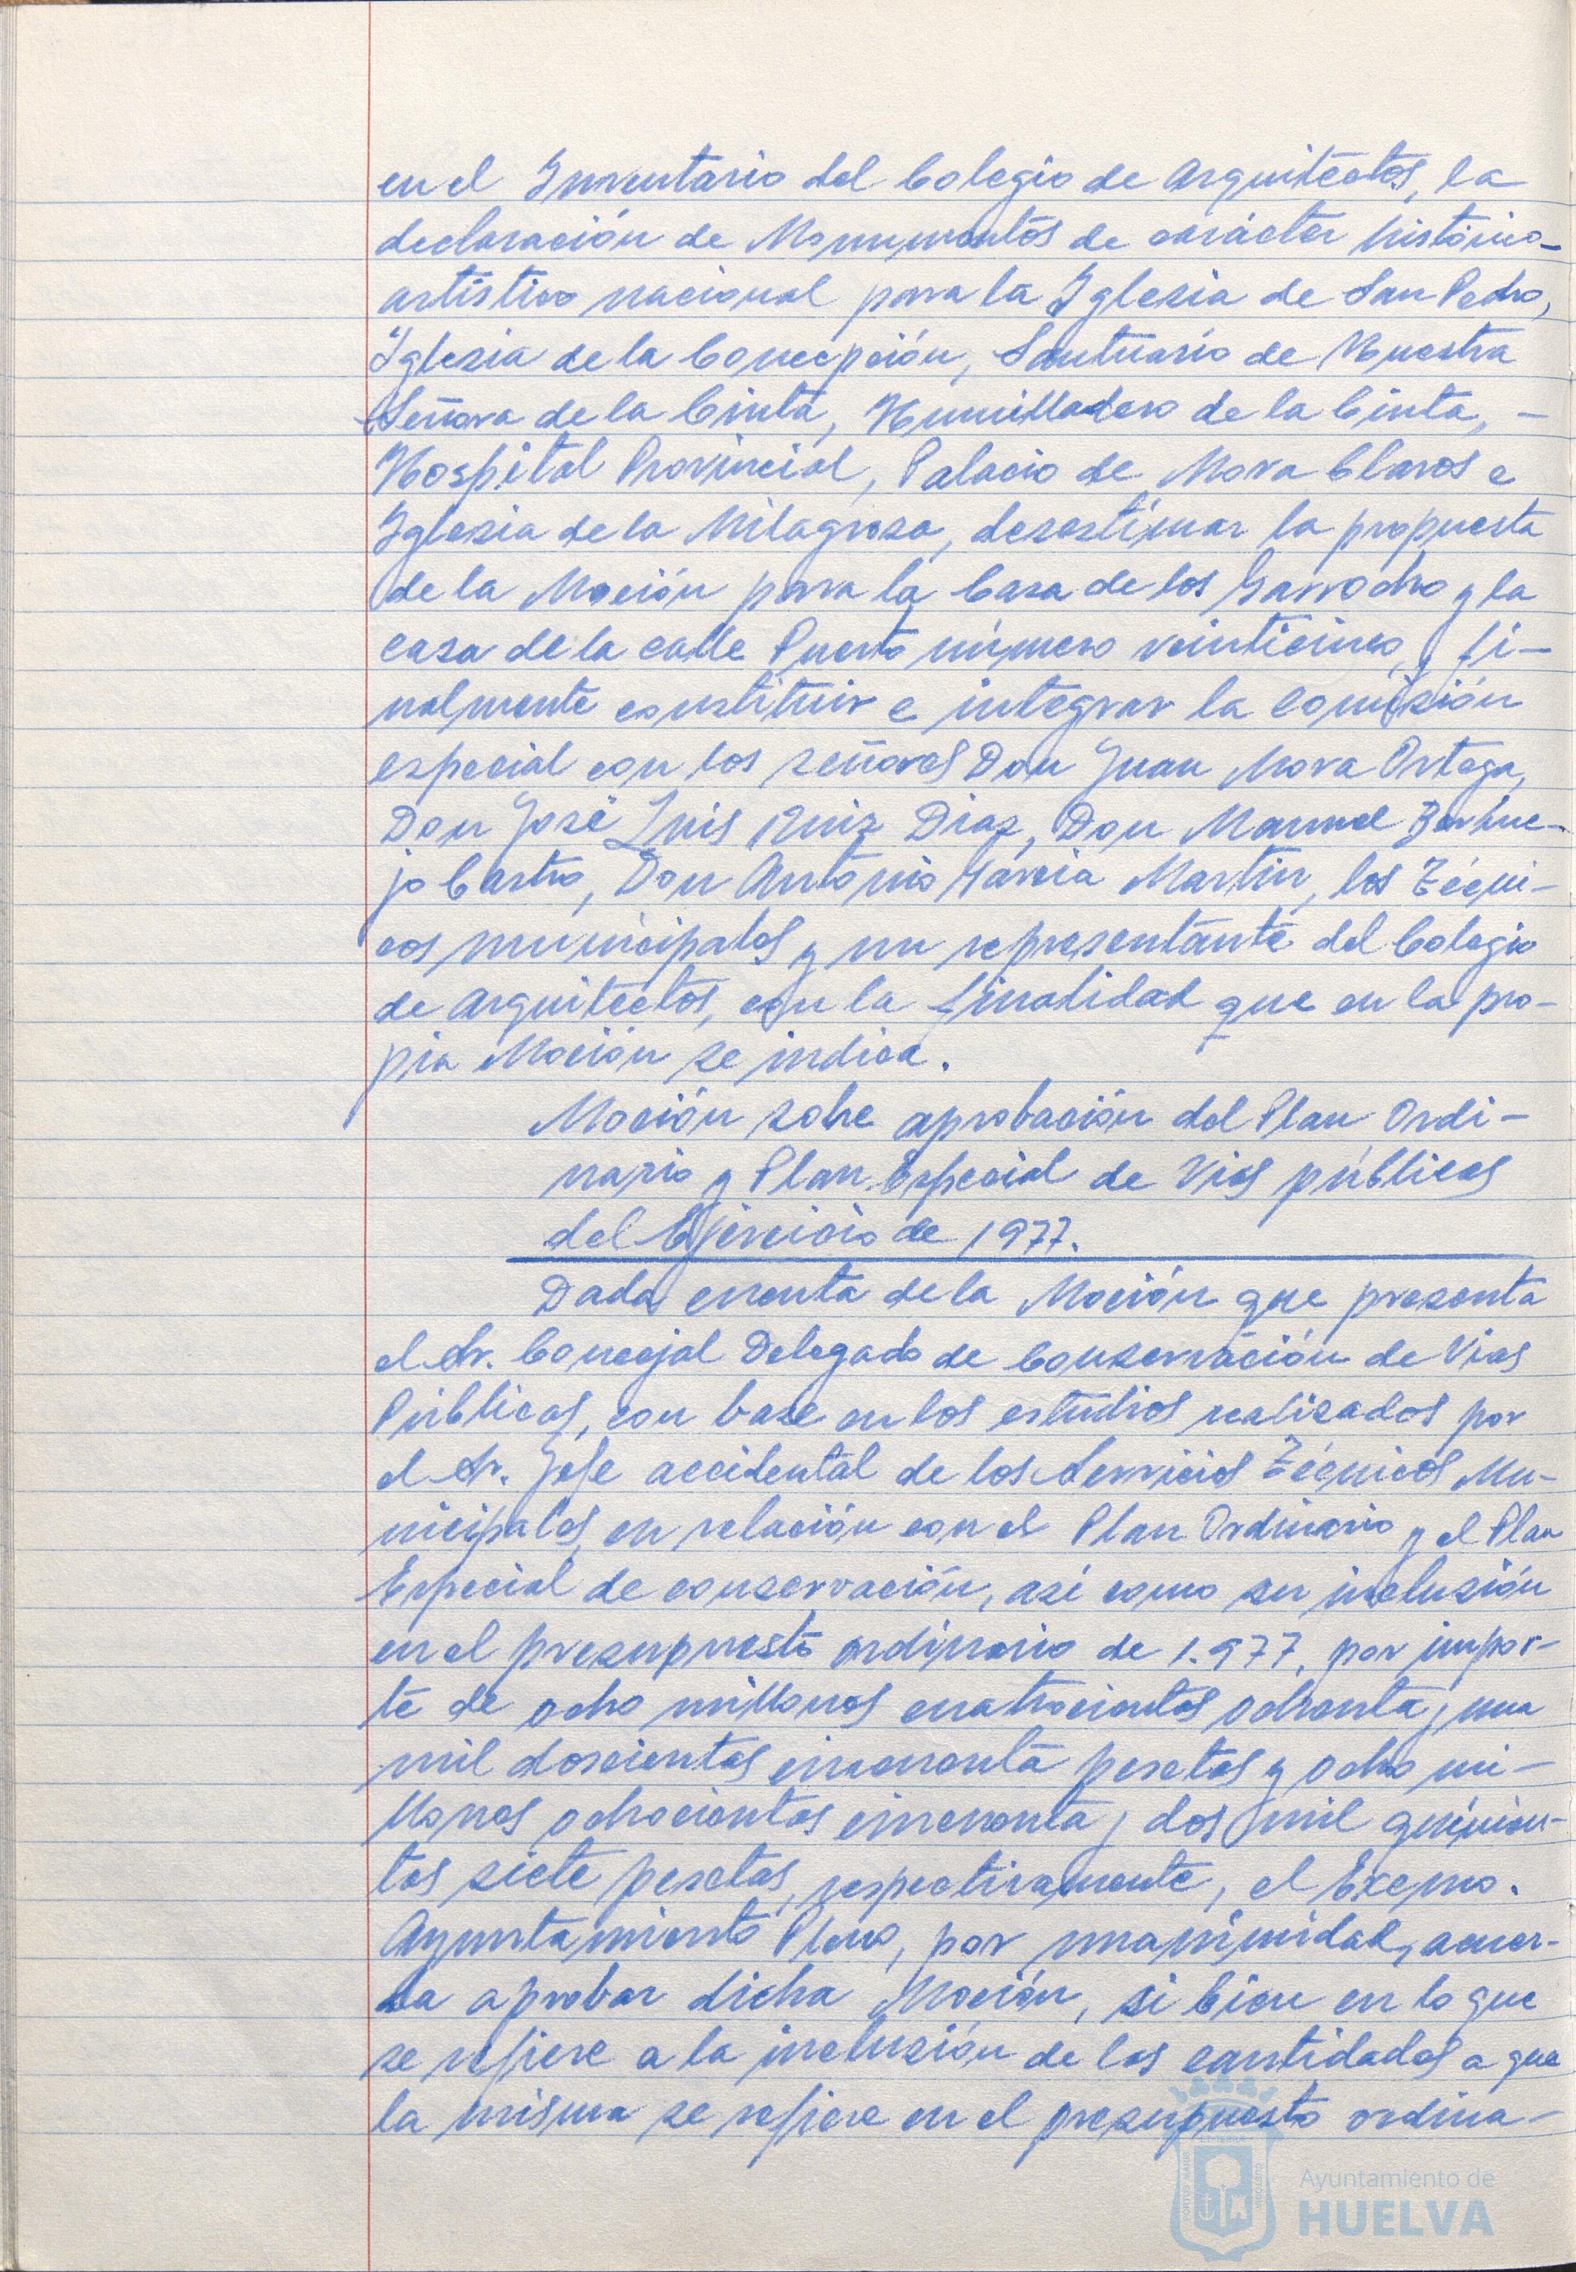 en el Inventario del Colegio de Arquitectos, la
declaración de Monumentos de carácter histórico-
artístico nacional para la Iglesia de San Pedro,
Iglesia de la Concepción, Santuario de Nuestra
Señora de la Cinta, Humilladero de la Cinta, -
Hospital Provincial, Palacio de Mora Claros e
Iglesia de la Milagrosa, desestimar la propuesta
de la Moción para la Casa de los Garrocho y la
casa de la calle Puerto número veinticinco, y fi-
nalmente constituir e integrar la comisión
especial con los señores Don Juan Mora Ortega,
Don José Luis Ruiz Diaz, Don Manuel Berme-
jo Castro, Don Antonio García Martín, los Técni-
cos municipales y un representante del Colegio
de Arquitectos, con la finalidad que en la pro-
pia Moción se indica.
Moción sobre aprobación del Plan Ordi-
nario y Plan Especial de Vias públicas
del Ejercicio de 1977.
Dada cuenta de la Moción que presenta
el Sr. Concejal Delegado de Conservación de Vias
Públicas, con base en los estudios realizados por
el Sr. Jefe accidental de los Servicios Técnicos Mu-
nicipales, en relación con el Plan Ordinario y el Plan
Especial de conservación, asi como su inclusión
en el presupuesto ordinario de 1.977, por impor-
te de ocho millones cuatrocientas ochenta y una
mil doscientas cincuenta pesetas y ocho mi-
llones ochocientas cincuenta y dos mil quinien-
tas siete pesetas, respectivamente, el Excmo.
Ayuntamiento Pleno, por unanimidad, acuer-
da aprobar dicha Moción, si bien en lo que
se refiere a la inclusión de las cantidades a que
la misma se refiere en el presupuesto ordina-
Ayuntamiento de
HUELVA